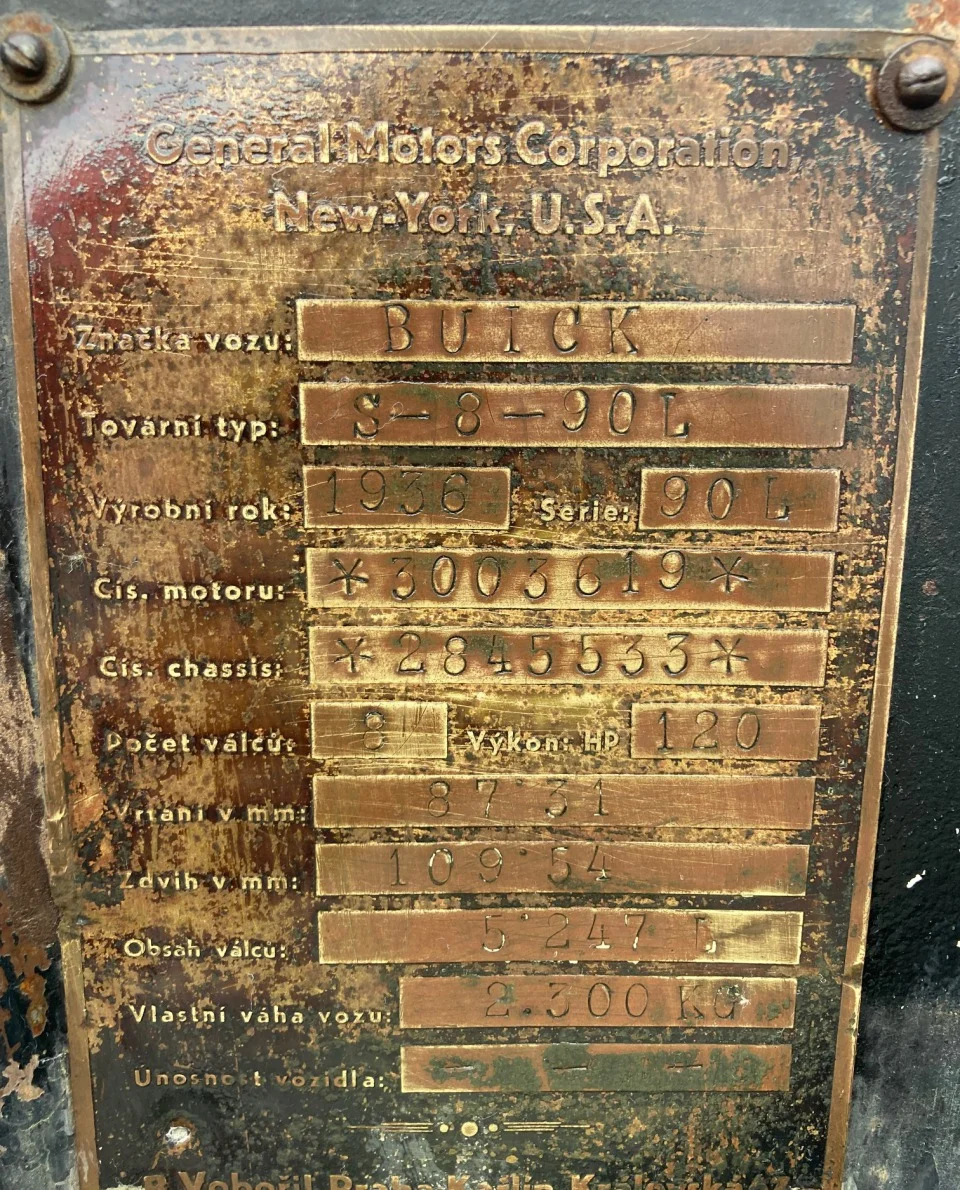 General Motors Corporation
New-York, U.S.A.
Značka vozu: BUICK
Tovární typ: S-8-90L
Výrobní rok: 1936 Serie: 90L
Čís. motoru: *3003619*
Čís. chassis: *2845533*
Počet válců: 8 Výkon: HP 120
Vrtání v mm: 87˙31
Zdvih v mm: 109˙54
Obsah válců: 5˙247 L
Vlastní váha vozu: 2.300 KG
Únosnost vozidla: - - -
Vobořil Praha Karlín Královská